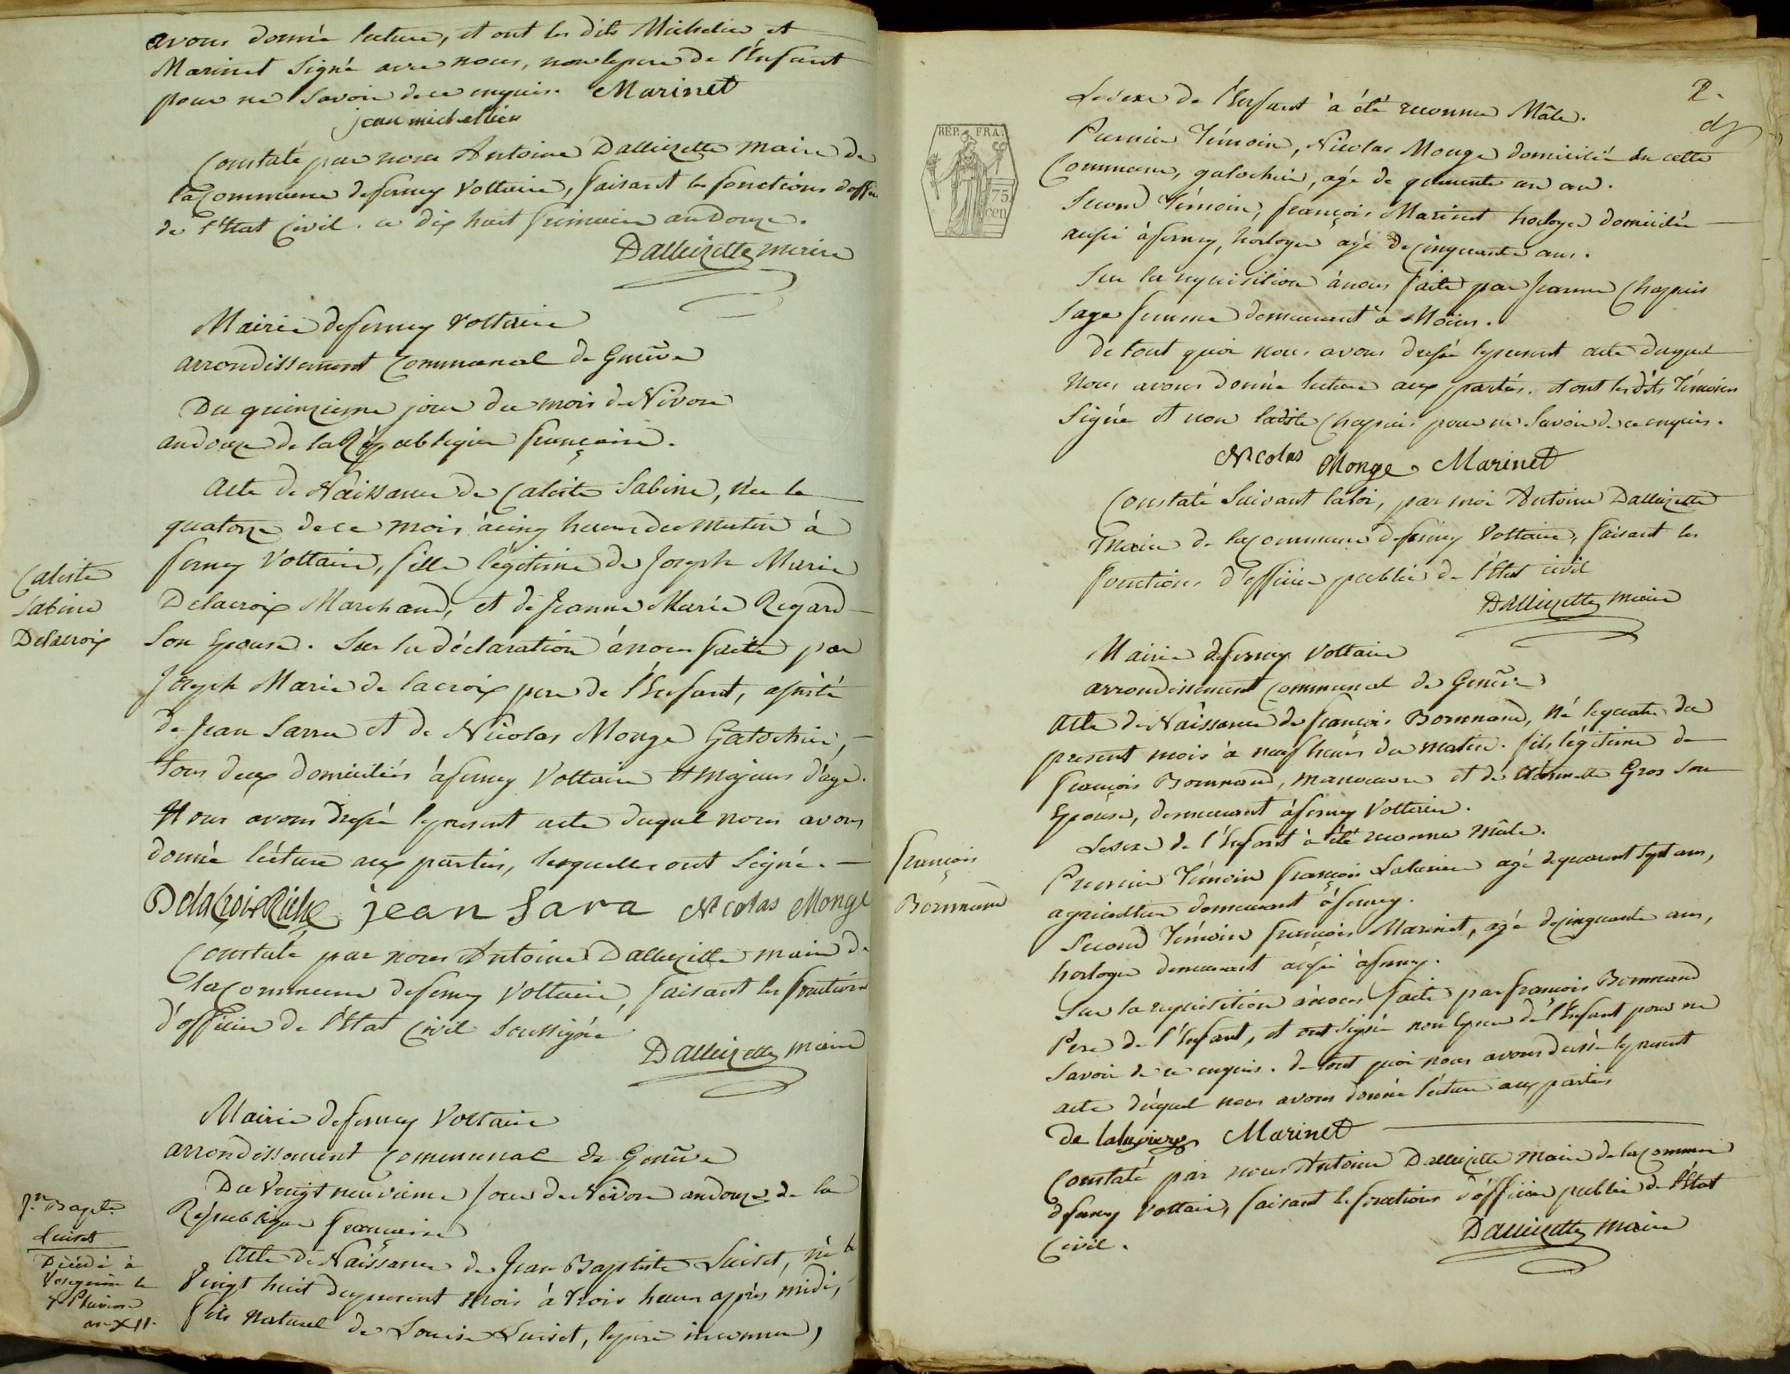 avons donné lecture, et ont les dits Michelin et
Marinet signé avec nous, non le pere de l'Enfant
pour ne savoir de ce enquis. Marinet
jean michellin
Constaté par nous Antoine Dallëizette maire de
la Commune de ferney Voltaire, faisant les fonctions d'offer
de l'Etat Civil. ce dix huit frimaire an douze.
Dallëizette maire
Mairie de ferney Voltaire
arrondissement Communal de Genève
Du quinzieme jour du mois de Nivose
an douze de la République française.
Acte de Naissance de Caliste Sabine, née le
quatorze de ce mois à cinq heures du matin à
ferney Voltaire, fille légitime de Joseph Marie
Caliste
Sabine
Delacroix
Delacroix Marchand, et de Jeanne Marie Regard
Son Epouse. Sur la déclaration à nous faite par
Joseph Marie de lacroix pere de l'Enfant, assisté
de Jean Sarra et de Nicolas Monge Galochier,
tous deux domiciliés à ferney Voltaire et majeurs d'age.
Nous avons dressé le present acte duquel nous avons
donné lecture aux parties, lesquelles ont signé.
jean Sara Nicolas Monge
Constaté par nous Antoine Dallëizette maire de
la Commune de ferney Voltaire, faisant les fonctions
d'officier de l'Etat Civil soussigné
Dallëizette maire
Mairie de ferney Voltaire
arrondissement Communal de Genève
Du Vingt neuvieme jour de Nivose an douze de la
République francaise
Jn. Bapte.
Luiset
Décédé à
le
Pluviose
an XII.
Acte de Naissance de Jean Baptiste Luiset, né le
Vingt huit du present mois à trois heures après midi,
fils naturel de Louise Luiset, le pere inconnu,
2.
REP. FRA.
75
cen
Le sexe de l'Enfant à été reconnu Mâle.
Premier Témoin, Nicolas Monge domicilié en cette
Commune, galochier, agé de quarante un an.
Second Témoin, françois Marinet horloger domicilié
aussi à ferney, horloger agé de cinquante ans.
Sur la requisition à nous faite par Jeanne Chapuis
Sage femme demeurant à Moëns.
de tout quoi nous avons dressé le present acte duquel
Nous avons donné lecture aux parties. et ont les dits Témoins
Signé et non ladite Chapuis pour ne savoir de ce enquis.
Nicolas Monge Marinet
Constaté suivant la loi, par moi Antoine Dallëizette
Maire de la Commune de ferney Voltaire, faisant les
fonctions d'officier public de l'Etat civil
Dallëizette maire
Mairie de ferney Voltaire
arrondissement Communal de Genève
Acte de Naissance de françois Bornnand, né le quatre du
present mois à neuf heures du matin. fils légitime de
françois Bornnand, manoeuvre et de Gros Son
Epouse, demeurant à ferney Voltaire.
Le sexe de l'Enfant à été reconnu mâle.
françois
Bornnand
Premier Témoin françois agé de quarante sept ans,
agriculteur demeurant à ferney.
Second Témoin françois Marinet, agé de cinquante ans,
horloger demeurant aussi à ferney.
Sur la requisition à nous faite par françois Bornnand
Pere de l'Enfant, et ont signé non le pere de l'Enfant pour ne
savoir de ce enquis. de tout quoi nous avons dressé le present
acte duquel nous avons donné lecture aux parties
Marinet
Constaté par nous Antoine Dallëizette maire de la Commune
de ferney Voltaire, faisant les fonctions d'officier public de l'Etat
Civil.
Dallëizette maire